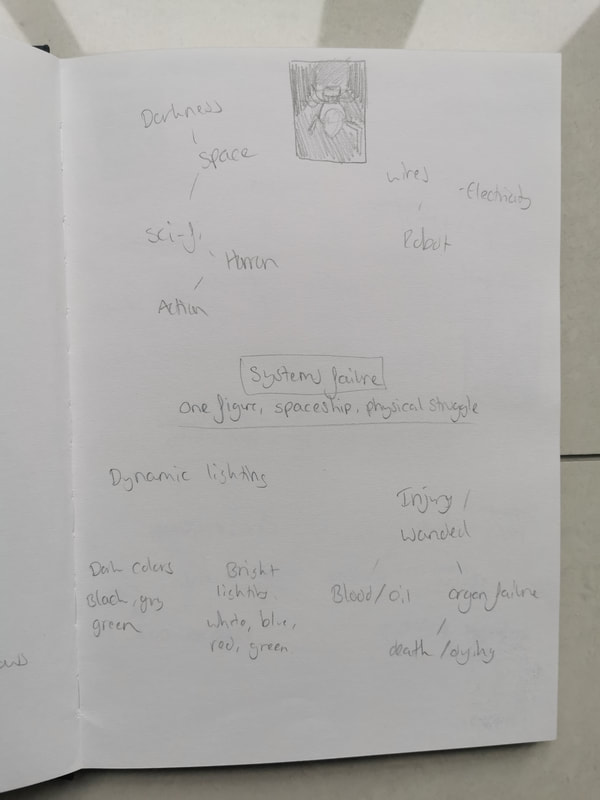 Darkness
Space
wires
-Electricity
Sci-fi
Robot
Horror
Action
Systems failure
One figure, spaceship, physical struggle
Dynamic lighting
Injury /
wanded
Dark colors
Black, gry
green
Bright
lighting.
white, blue,
red, green
Blood/oil
organ failure
death/dying